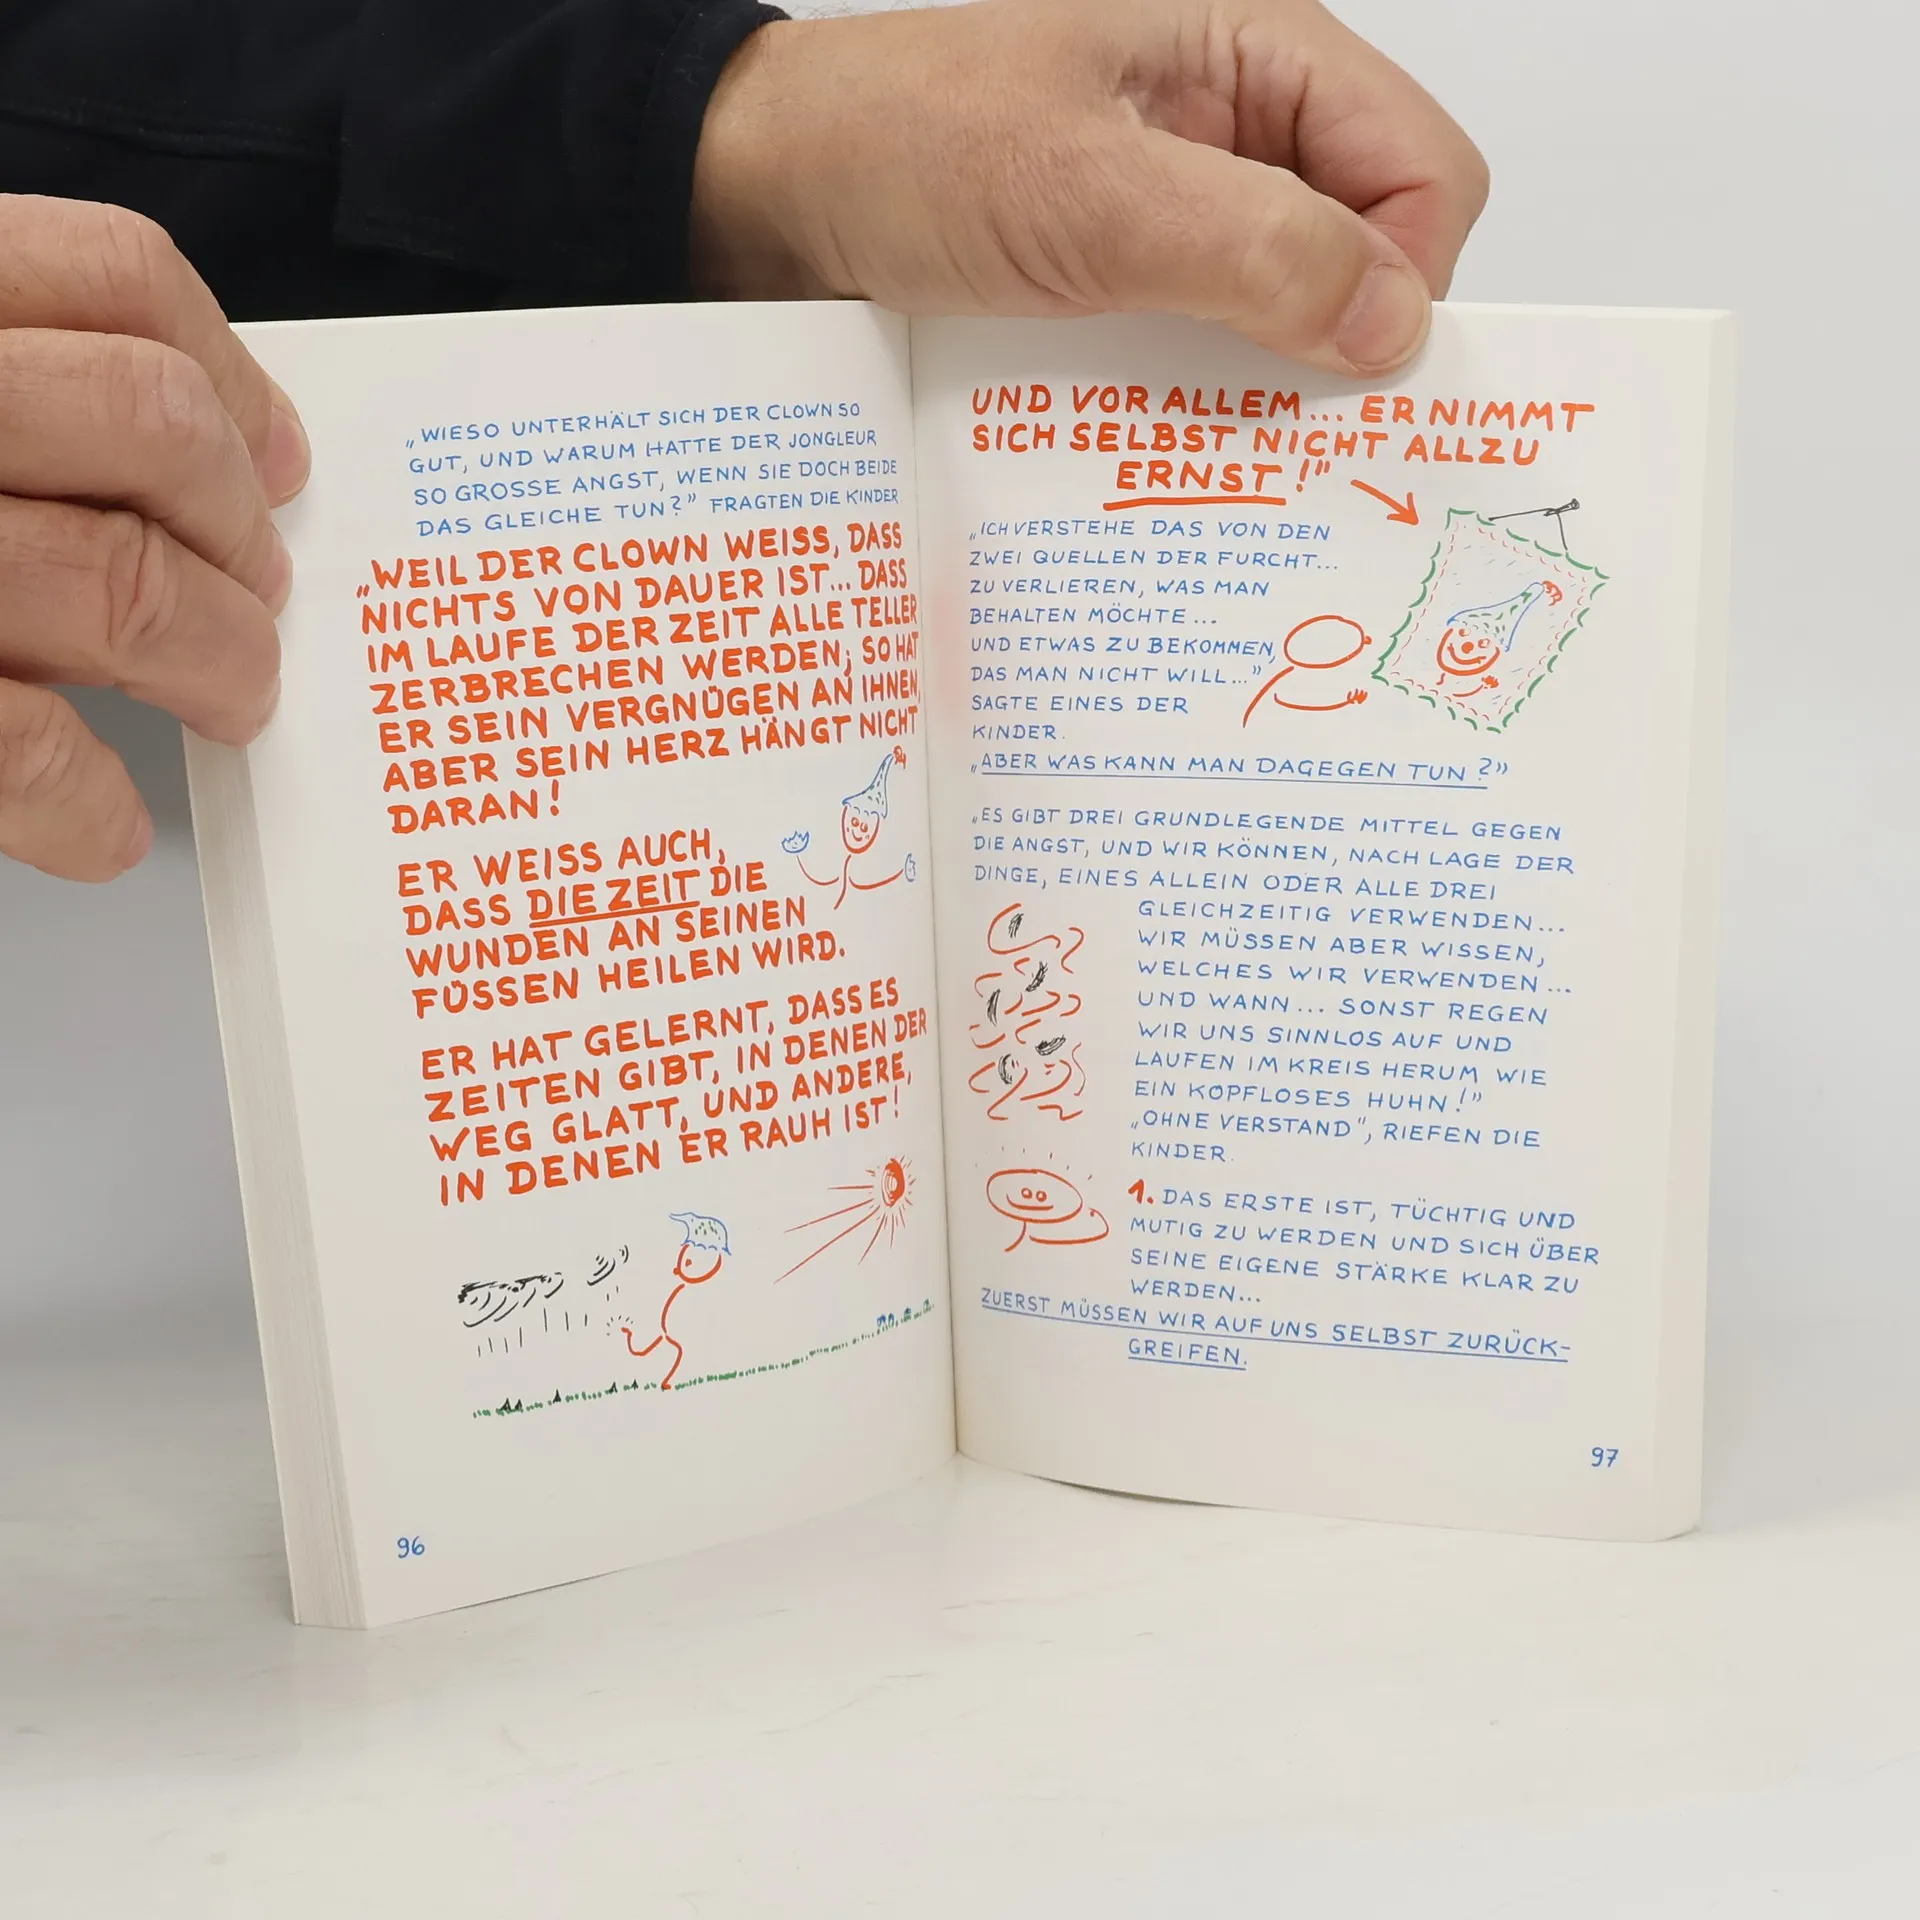 „WIESO UNTERHÄLT SICH DER CLOWN SO
GUT, UND WARUM HATTE DER JONGLEUR
SO GROSSE ANGST, WENN SIE DOCH BEIDE
DAS GLEICHE TUN?” FRAGTEN DIE KINDER
„WEIL DER CLOWN WEISS, DASS
NICHTS VON DAUER IST... DASS
IM LAUFE DER ZEIT ALLE TELLER
ZERBRECHEN WERDEN; SO HAT
ER SEIN VERGNÜGEN AN IHNEN,
ABER SEIN HERZ HÄNGT NICHT
DARAN!
ER WEISS AUCH,
DASS DIE ZEIT DIE
WUNDEN AN SEINEN
FÜSSEN HEILEN WIRD.
ER HAT GELERNT, DASS ES
ZEITEN GIBT, IN DENEN DER
WEG GLATT, UND ANDERE,
IN DENEN ER RAUH IST!
96
UND VOR ALLEM... ER NIMMT
SICH SELBST NICHT ALLZU
ERNST!”
„ICH VERSTEHE DAS VON DEN
ZWEI QUELLEN DER FURCHT...
ZU VERLIEREN, WAS MAN
BEHALTEN MÖCHTE...
UND ETWAS ZU BEKOMMEN,
DAS MAN NICHT WILL...”
SAGTE EINES DER
KINDER.
„ABER WAS KANN MAN DAGEGEN TUN?”
„ES GIBT DREI GRUNDLEGENDE MITTEL GEGEN
DIE ANGST, UND WIR KÖNNEN, NACH LAGE DER
DINGE, EINES ALLEIN ODER ALLE DREI
GLEICHZEITIG VERWENDEN...
WIR MÜSSEN ABER WISSEN,
WELCHES WIR VERWENDEN...
UND WANN... SONST REGEN
WIR UNS SINNLOS AUF UND
LAUFEN IM KREIS HERUM WIE
EIN KOPFLOSES HUHN!”
„OHNE VERSTAND”, RIEFEN DIE
KINDER.
1. DAS ERSTE IST, TÜCHTIG UND
MUTIG ZU WERDEN UND SICH ÜBER
SEINE EIGENE STÄRKE KLAR ZU
WERDEN...
ZUERST MÜSSEN WIR AUF UNS SELBST ZURÜCK-
GREIFEN.
97